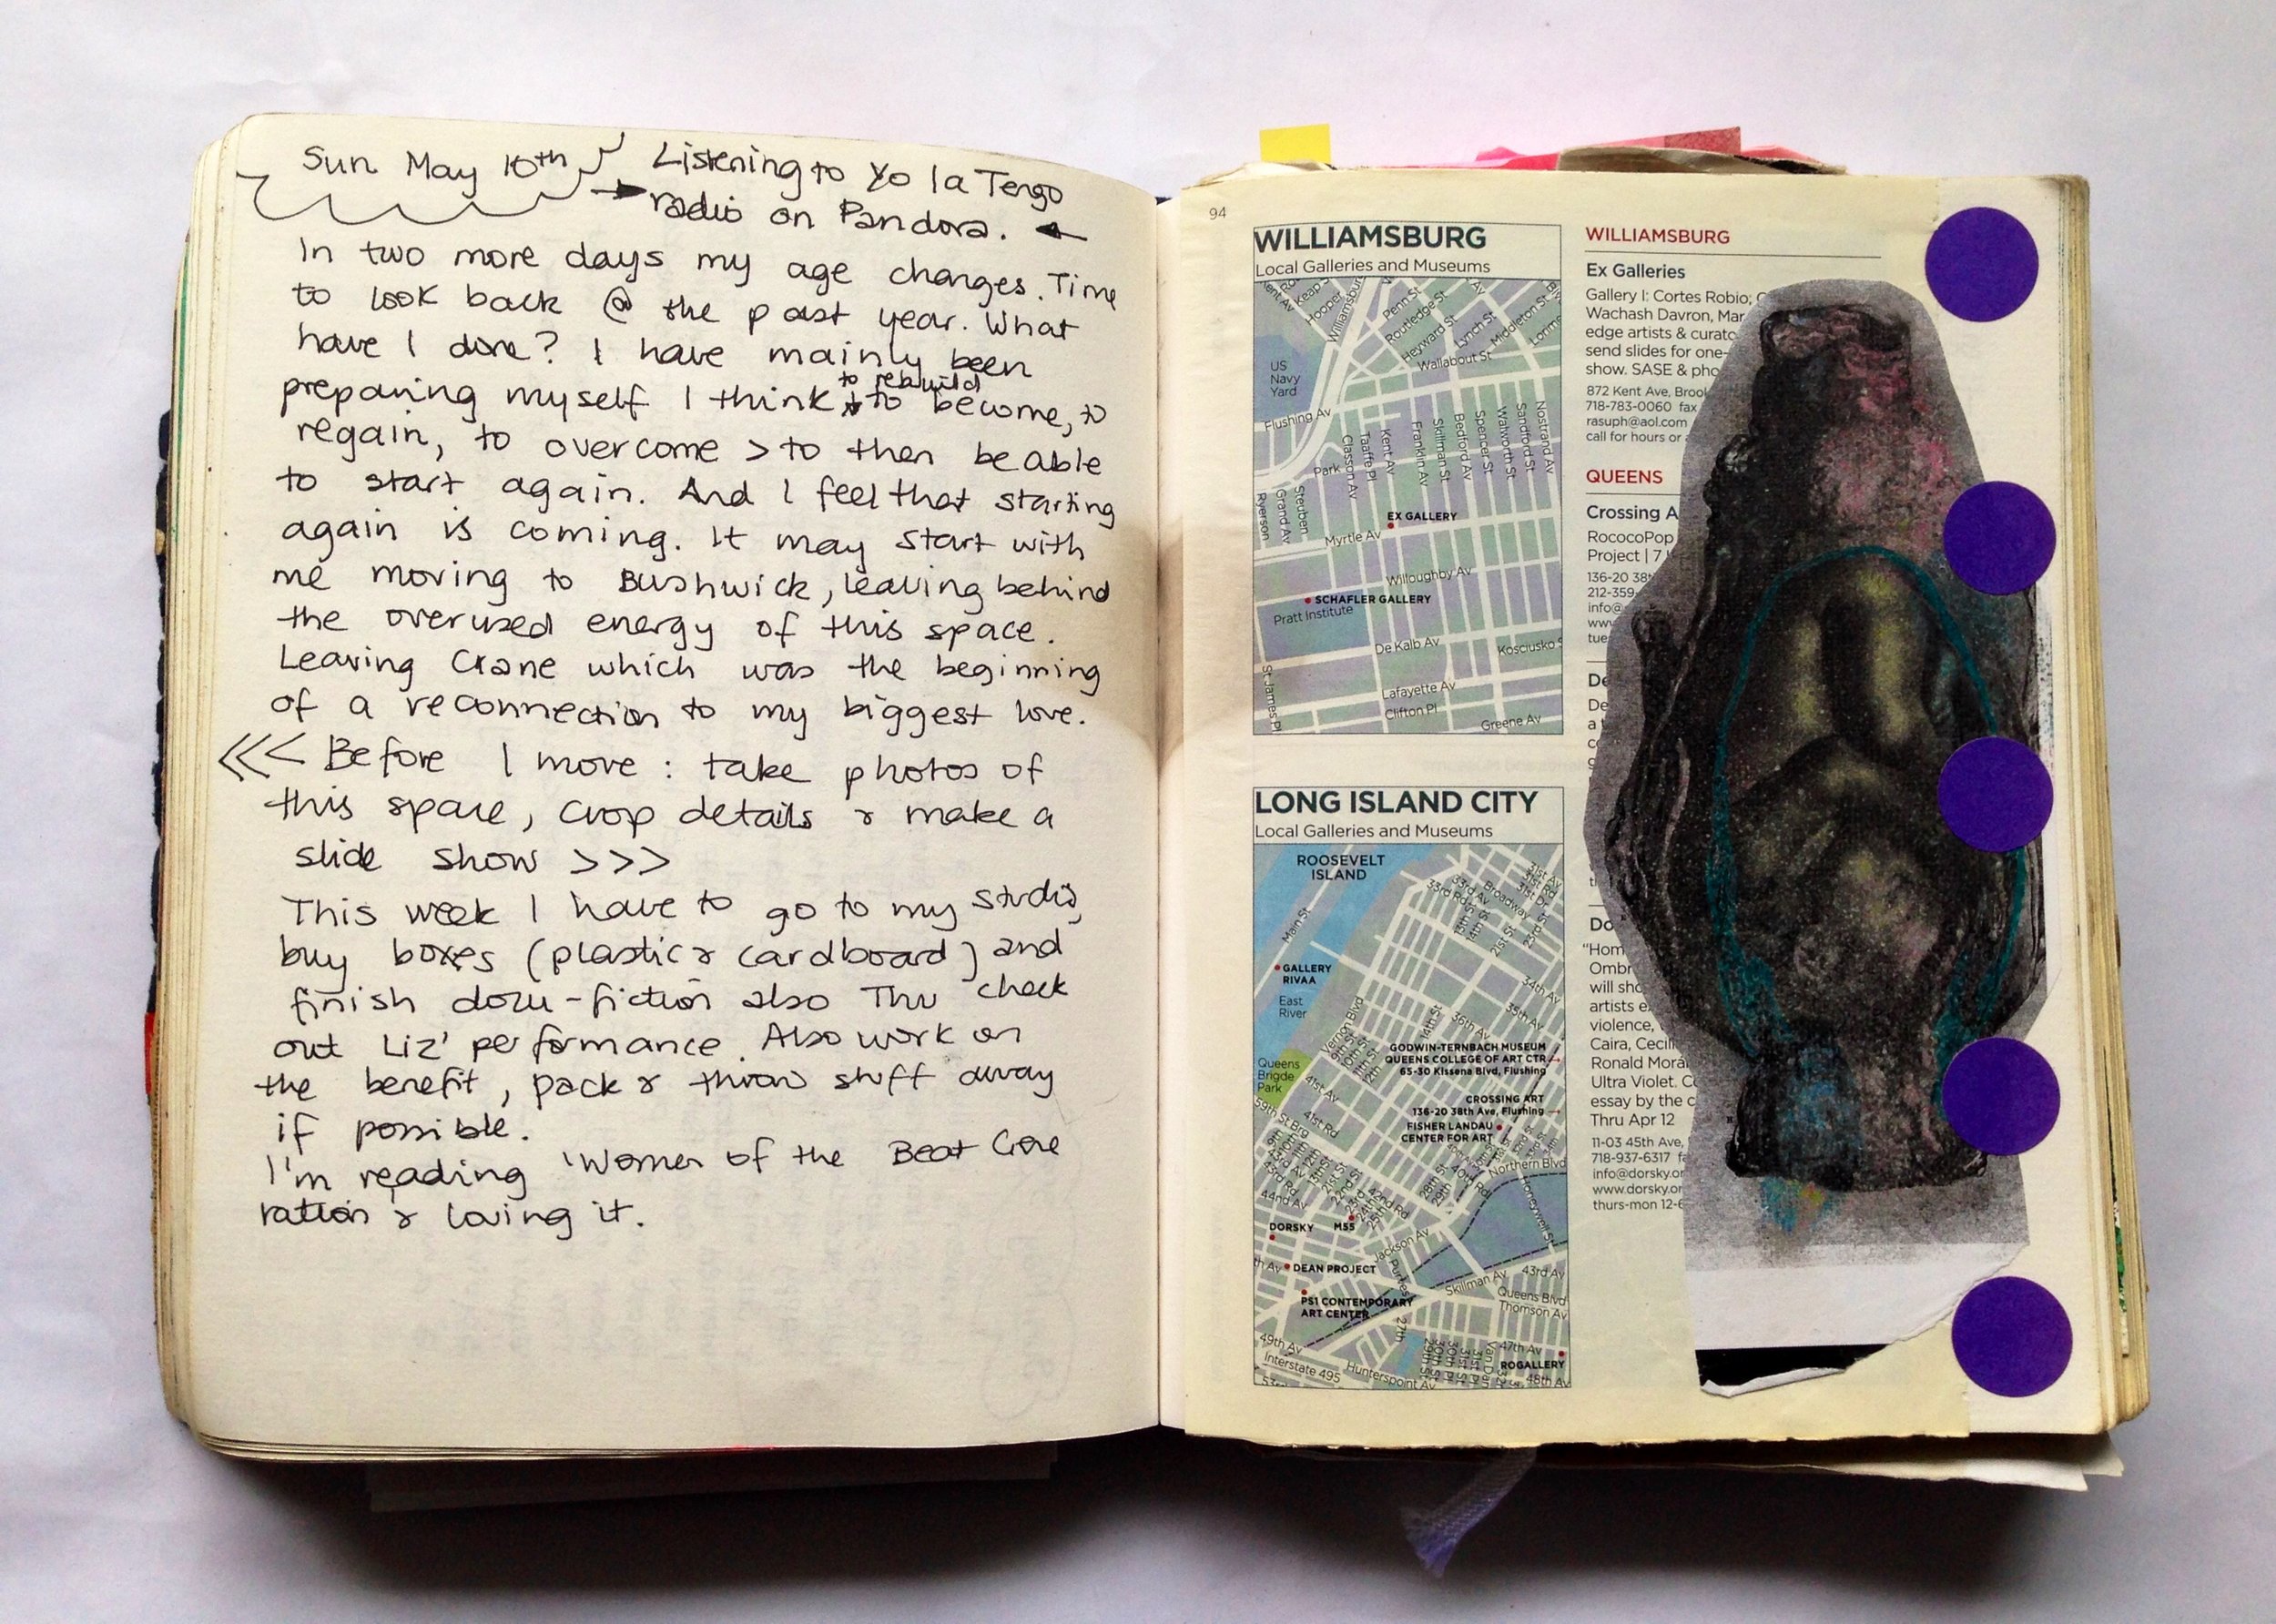 Sun May 10th
Listening to Yo la Tengo
radio on Pandora.
In two more days my age changes. Time
to look back @ the past year. What
have I done? I have mainly been
preparing myself I think to rebuild to become, to
regain, to overcome > to then be able
to start again. And I feel that starting
again is coming. It may start with
me moving to Bushwick, leaving behind
the overused energy of this space.
Leaving Crane which was the beginning
of a reconnection to my biggest love.
<<< Before I move: take photos of
this space, crop details & make a
slide show >>>
This week I have to go to my studio,
buy boxes (plastic & cardboard) and
finish docu-fiction also Thu check
out Liz' performance. Also work on
the benefit, pack & throw stuff away
if possible.
I'm reading 'Women of the Beat Gene
ration & loving it.
94
WILLIAMSBURG
Local Galleries and Museums
Kent Av
Keap St
Hooper
Williamsburg
Penn St
Routledge St
Heyward St
Lynch St
Middleton St
Wallabout St
US
Navy
Yard
Flushing Av
Park
Classon Av
Taaffe Pl
Kent Av
Franklin Av
Skillman St
Bedford Av
Spencer St
Walworth St
Sandford St
Nostrand Av
Ryerson
Grand Av
Steuben
EX GALLERY
Myrtle Av
Willoughby Av
SCHAFLER GALLERY
Pratt Institute
De Kalb Av
Kosciusko S
St James Pl
Lafayette Av
Clifton Pl
Greene Av
LONG ISLAND CITY
Local Galleries and Museums
ROOSEVELT
ISLAND
Main St
33rd Rd
33rd Av
Broadway
31st Av
31st Rd
31st Dr
13th St
14th St
21st St
23rd St
GALLERY
RIVAA
East
River
Vernon Blvd
34th Av
35th Av
36th Av
9th St
10th St
11th St
12th St
14th St
GODWIN-TERNBACH MUSEUM
QUEENS COLLEGE OF ART CTR
65-30 Kissena Blvd, Flushing
Queens
Brigde
Park
41st Av
59th St Brg
41st Rd
CROSSING ART
136-20 38th Ave, Flushing
FISHER LANDAU
CENTER FOR ART
Northern Blvd
40th Rd
42nd Rd
43rd Rd
44nd Av
28th St
29th St
Honeywell St
DORSKY
M55
Jackson Av
th Av
DEAN PROJECT
Purves
Skillman Av
43rd Av
Queens Blvd
Thomson Av
PS1 CONTEMPORARY
ART CENTER
27th
49th Av
Interstate 495
Hunterspoint Av
53rd
Van Dam
47th Av
ROGALLERY
48th Av
WILLIAMSBURG
Ex Galleries
Gallery I: Cortes Robio; C
Wachash Davron, Mar
edge artists & curato
send slides for one-
show. SASE & pho
872 Kent Ave, Brook
718-783-0060 fax
rasuph@aol.com
call for hours or a
QUEENS
Crossing A
RococoPop
Project | 7
136-20 38t
212-359-
info@
www
tues
De
De
a t
co
Do
"Hom
Ombr
will sho
artists e
violence,
Caira, Cecili
Ronald Mora
Ultra Violet. C
essay by the c
Thru Apr 12
11-03 45th Ave,
718-937-6317 fa
info@dorsky.or
www.dorsky.or
thurs-mon 12-6